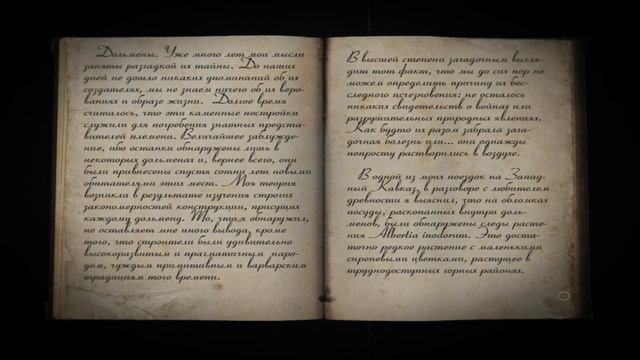 Дольмены. Уже много лет мои мысли
заняты разгадкой их тайны. До наших
дней не дошло никаких упоминаний об их
создателях, мы не знаем ничего об их веро-
ваниях и образе жизни. Долгое время
считалось, что эти каменные постройки
служили для погребения знатных предста-
вителей племени. Величайшее заблужде-
ние, ибо останки обнаружены лишь в
некоторых дольменах и, вернее всего, они
были привнесены спустя сотни лет новыми
обитателями этих мест. Моя теория
возникла в результате изучения строгих
закономерностей конструкции, присущих
каждому дольмену. То, что я обнаружил,
не оставляет мне иного вывода, кроме
того, что строители были удивительно
высокоразвитым и прагматичным наро-
дом, чуждым примитивным и варварским
традициям того времени.
В высшей степени загадочным выгля-
дит тот факт, что мы до сих пор не
можем определить причину их бес-
следного исчезновения: не осталось
никаких свидетельств о войнах или
разрушительных природных явлениях.
Как будто их разом забрала зага-
дочная болезнь или... они однажды
попросту растворились в воздухе.
В одной из моих поездок на Запад-
ный Кавказ, в разговоре с любителем
древности я выяснил, что на обломках
посуды, раскопанных внутри доль-
менов, были обнаружены следы расте-
ния Albertia inodorum. Это доста-
точно редкое растение с маленькими
сиреневыми цветками, растущее в
труднодоступных горных районах.